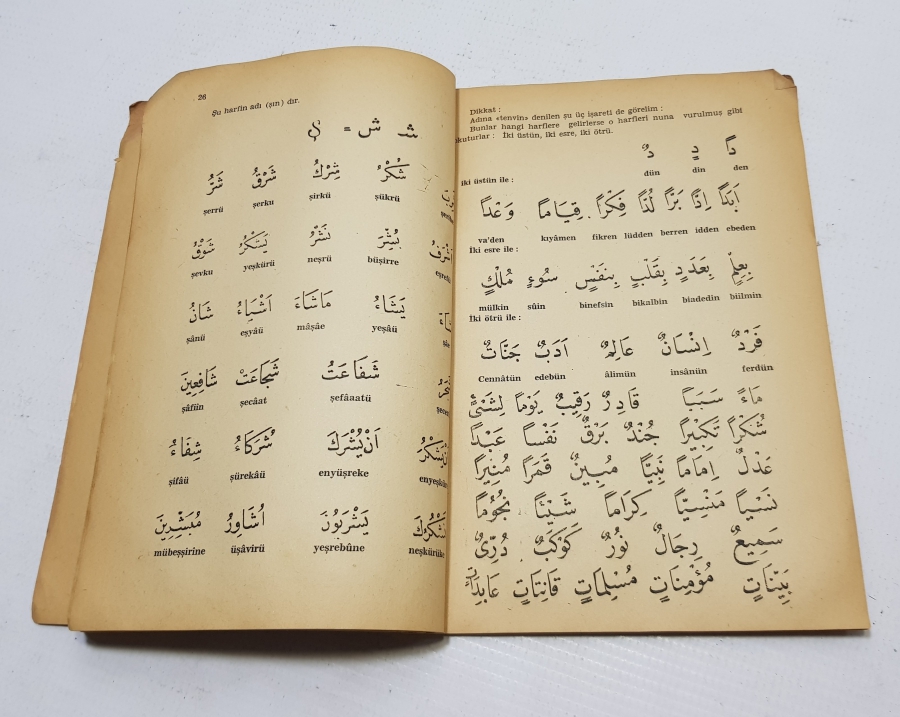 26
Şu harfin adı (şın) dır.
شـ ش =
شُكْرُ شِرْكُ شَرْقُ شَرُّ
şükrü şirkü şerku şerrü
بُشِّرَ نَشْرُ يَشْكُرُ شَوْقُ
büşirre neşrü yeşkürü şevku
يَشَاءُ مَاشَاءَ اَشْيَاءُ شَانُ
yeşâü mâşâe eşyâü şânü
شَفَاعَتُ شَجَاعَتْ شَافِعِينَ
şefâaatü şecâat şâfiîn
اَنْ يُشْرَكَ شُرَكَاءُ شِفَاءُ
enyüşreke şürekâü şifâü
يَشْرَبُونَ اُشَاوِرُ مُبَشِّرِينَ
neşkürüke yeşrebûne üşâvirü mübeşşirîne
Dikkat :
Adına «tenvin» denilen şu üç işareti de görelim :
Bunlar hangi harflere gelirlerse o harfleri nuna vurulmuş gibi
okuturlar : İki üstün, iki esre, iki ötrü.
دًا دٍ دٌ
den din dün
iki üstün ile :
اَبَدًا اِذًا بَرًّا لُدًّا فِكْرًا قِيَامًا وَعْدًا
ebeden idden berren lüdden fikren kıyâmen va'den
İki esre ile :
بِعِلْمٍ بِعَدَدٍ بِقَلْبٍ بِنَفْسٍ سُوءٍ مُلْكٍ
biilmin biadedin bikalbin binefsin sûin mülkin
İki ötrü ile :
فَرْدٌ اِنْسَانٌ عَالِمٌ اَدَبٌ جَنَّاتٌ
ferdün insânün âlimün edebün Cennâtün
مَاءً سَبَبًا قَادِرٌ رَقِيبٌ يَوْمًا لِشَىْءٍ
شُكْرًا تَكْبِيرًا جُنْدٌ بَرْقٌ نَفْسًا عَبْدًا
عَدْلٌ اِمَامًا نَبِيًّا مُبِينٌ قَمَرًا مُنِيرًا
نَسْيًا مَنْسِيًّا كِرَامًا شَيْئًا نُجُومًا
سَمِيعٌ رِجَالٌ نُورٌ كَوْكَبٌ دُرِّىٌّ
بَيِّنَاتٍ مُؤْمِنَاتٍ مُسْلِمَاتٍ قَانِتَاتٍ عَابِدَاتٍ